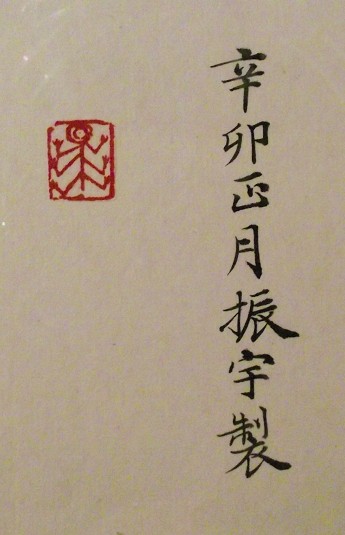 辛卯正月振宇製